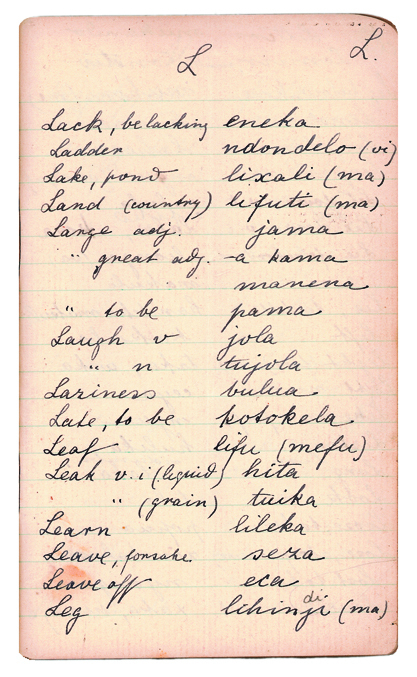 L.
L
Lack, be lacking eneka
Ladder ndondelo (vi)
Lake, pond lixali (ma)
Land (country) lifuti (ma)
Large adj. jama
" great adj. -a kama
manena
" to be pama
Laugh v jola
" n tujola
Laziness bulua
Late, to be kotokela
Leaf lifu (mefu)
Leak v. i (liquid) hita
" (grain) tuika
Learn lileka
Leave, forsake. seza
Leave off eca
di
Leg lihinji (ma)